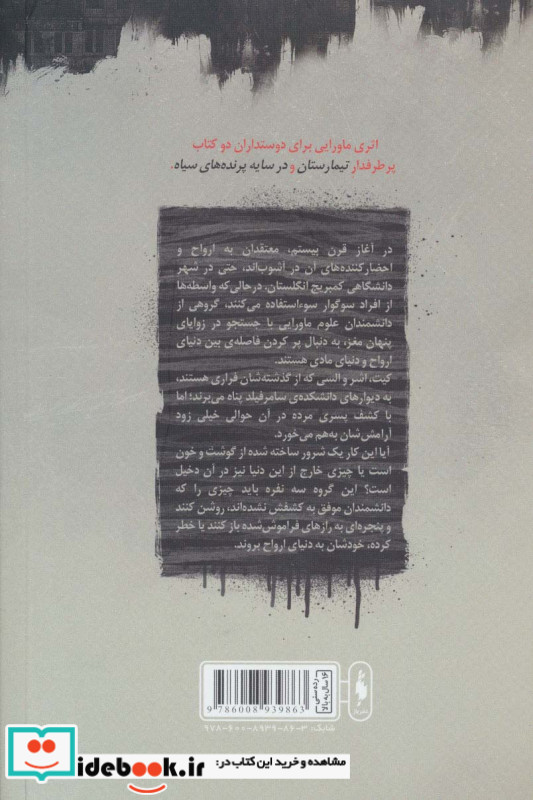 اثری ماورایی برای دوستداران دو کتاب
پرطرفدار تیمارستان و در سایه پرنده‌های سیاه.
در آغاز قرن بیستم، معتقدان به ارواح و
احضارکننده‌های آن در آشوب‌اند، حتی در شهر
دانشگاهی کمبریج انگلستان. درحالی‌که واسطه‌ها
از افراد سوگوار سوءاستفاده می‌کنند، گروهی از
دانشمندان علوم ماورایی با جستجو در زوایای
پنهان مغز، به دنبال پر کردن فاصله‌ی بین دنیای
ارواح و دنیای مادی هستند.
کیت، اشر و السی که از گذشته‌شان فراری هستند،
به دیوارهای دانشکده‌ی سامرفیلد پناه می‌برند؛ اما
با کشف پسری مرده در آن حوالی خیلی زود
آرامش‌شان به‌هم می‌خورد.
آیا این کار یک شرور ساخته شده از گوشت و خون
است یا چیزی خارج از این دنیا نیز در آن دخیل
است؟ این گروه سه نفره باید چیزی را که
دانشمندان موفق به کشفش نشده‌اند، روشن کنند
و پنجره‌ای به رازهای فراموش‌شده باز کنند یا خطر
کرده، خودشان به دنیای ارواح بروند.
رده سنی
۱۶ سال به بالا
9 786008 939863
شابک: ۳-۸۶-۸۹۳۹-۶۰۰-۹۷۸
نشر باژ
idebook.ir
مشاهده و خرید این کتاب در: